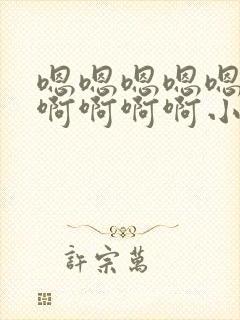 嗯嗯嗯嗯嗯
啊啊啊啊小
許宗萬